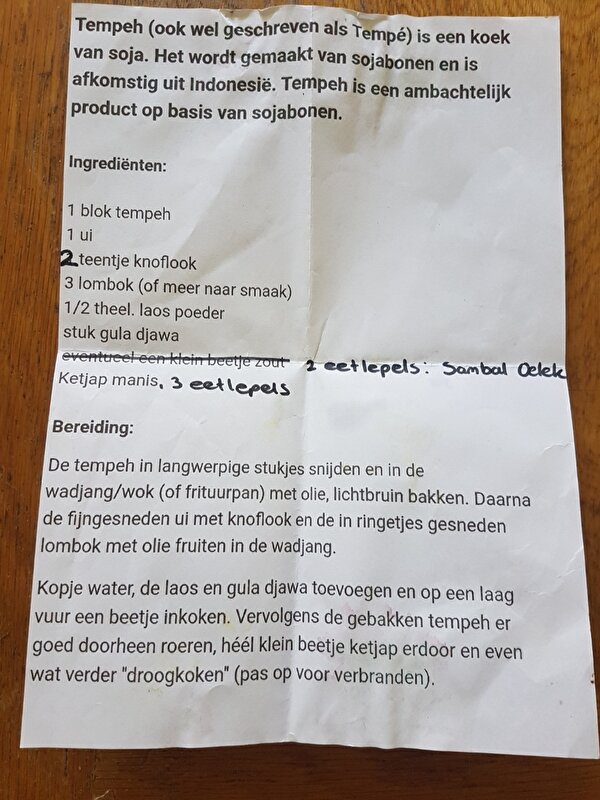 Tempeh (ook wel geschreven als Tempé) is een koek
van soja. Het wordt gemaakt van sojabonen en is
afkomstig uit Indonesië. Tempeh is een ambachtelijk
product op basis van sojabonen.
Ingrediënten:
1 blok tempeh
1 ui
2 teentje knoflook
3 lombok (of meer naar smaak)
1/2 theel. laos poeder
stuk gula djawa
eventueel een klein beetje zout 2 eetlepels: Sambal Oelek
Ketjap manis. 3 eetlepels
Bereiding:
De tempeh in langwerpige stukjes snijden en in de
wadjang/wok (of frituurpan) met olie, lichtbruin bakken. Daarna
de fijngesneden ui met knoflook en de in ringetjes gesneden
lombok met olie fruiten in de wadjang.
Kopje water, de laos en gula djawa toevoegen en op een laag
vuur een beetje inkoken. Vervolgens de gebakken tempeh er
goed doorheen roeren, héél klein beetje ketjap erdoor en even
wat verder "droogkoken" (pas op voor verbranden).